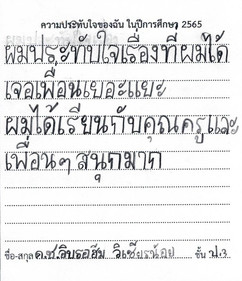 ความประทับใจของฉัน ในปีการศึกษา 2565
ผมประทับใจเรื่องที่ผมได้
เจอเพื่อนเยอะแยะ
ผมได้เรียนกับคุณครูและ
เพื่อนๆ สนุกมาก
ชื่อ-สกุล ด.ช.อิบรอฮีม วิเชียรน้อย ชั้น ป.3